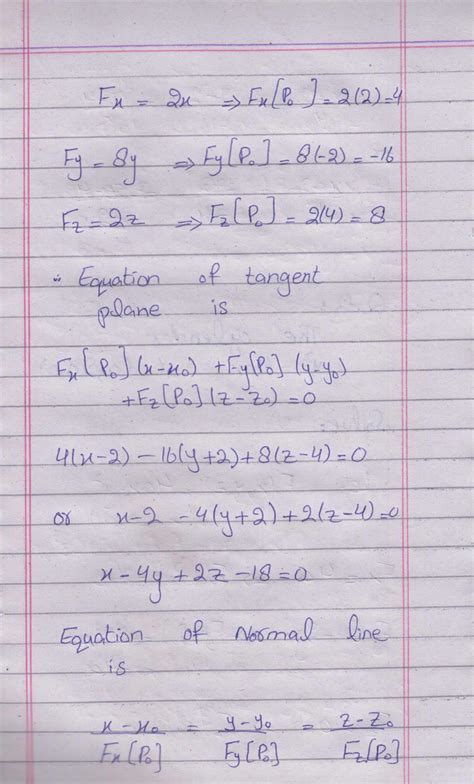 Fx = 2x ⇒ Fx[P₀] = 2(2) = 4
Fy = 8y ⇒ Fy[P₀] = 8(-2) = -16
Fz = 2z ⇒ Fz[P₀] = 2(4) = 8
∴ Equation of tangent
plane is
Fx[P₀](x-x₀) + Fy[P₀](y-y₀)
+ Fz[P₀](z-z₀) = 0
4(x-2) - 16(y+2) + 8(z-4) = 0
or x-2 - 4(y+2) + 2(z-4) = 0
x - 4y + 2z - 18 = 0
Equation of Normal line
is
x-x₀/Fx[P₀] = y-y₀/Fy[P₀] = z-z₀/Fz[P₀]